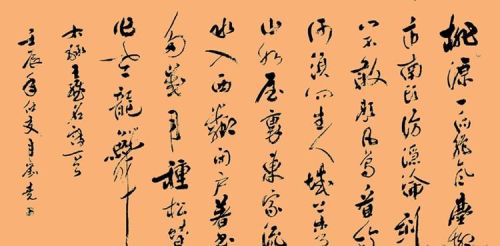 桃源一向絕風塵柳
市南頭訪隱淪到
門不敢題凡鳥看竹
何須問主人城上青
山如屋裏東家流
水入西鄰閉戶著書
多歲月種松皆
作老龍鱗
右錄王維名詩一首
壬辰年仲夏